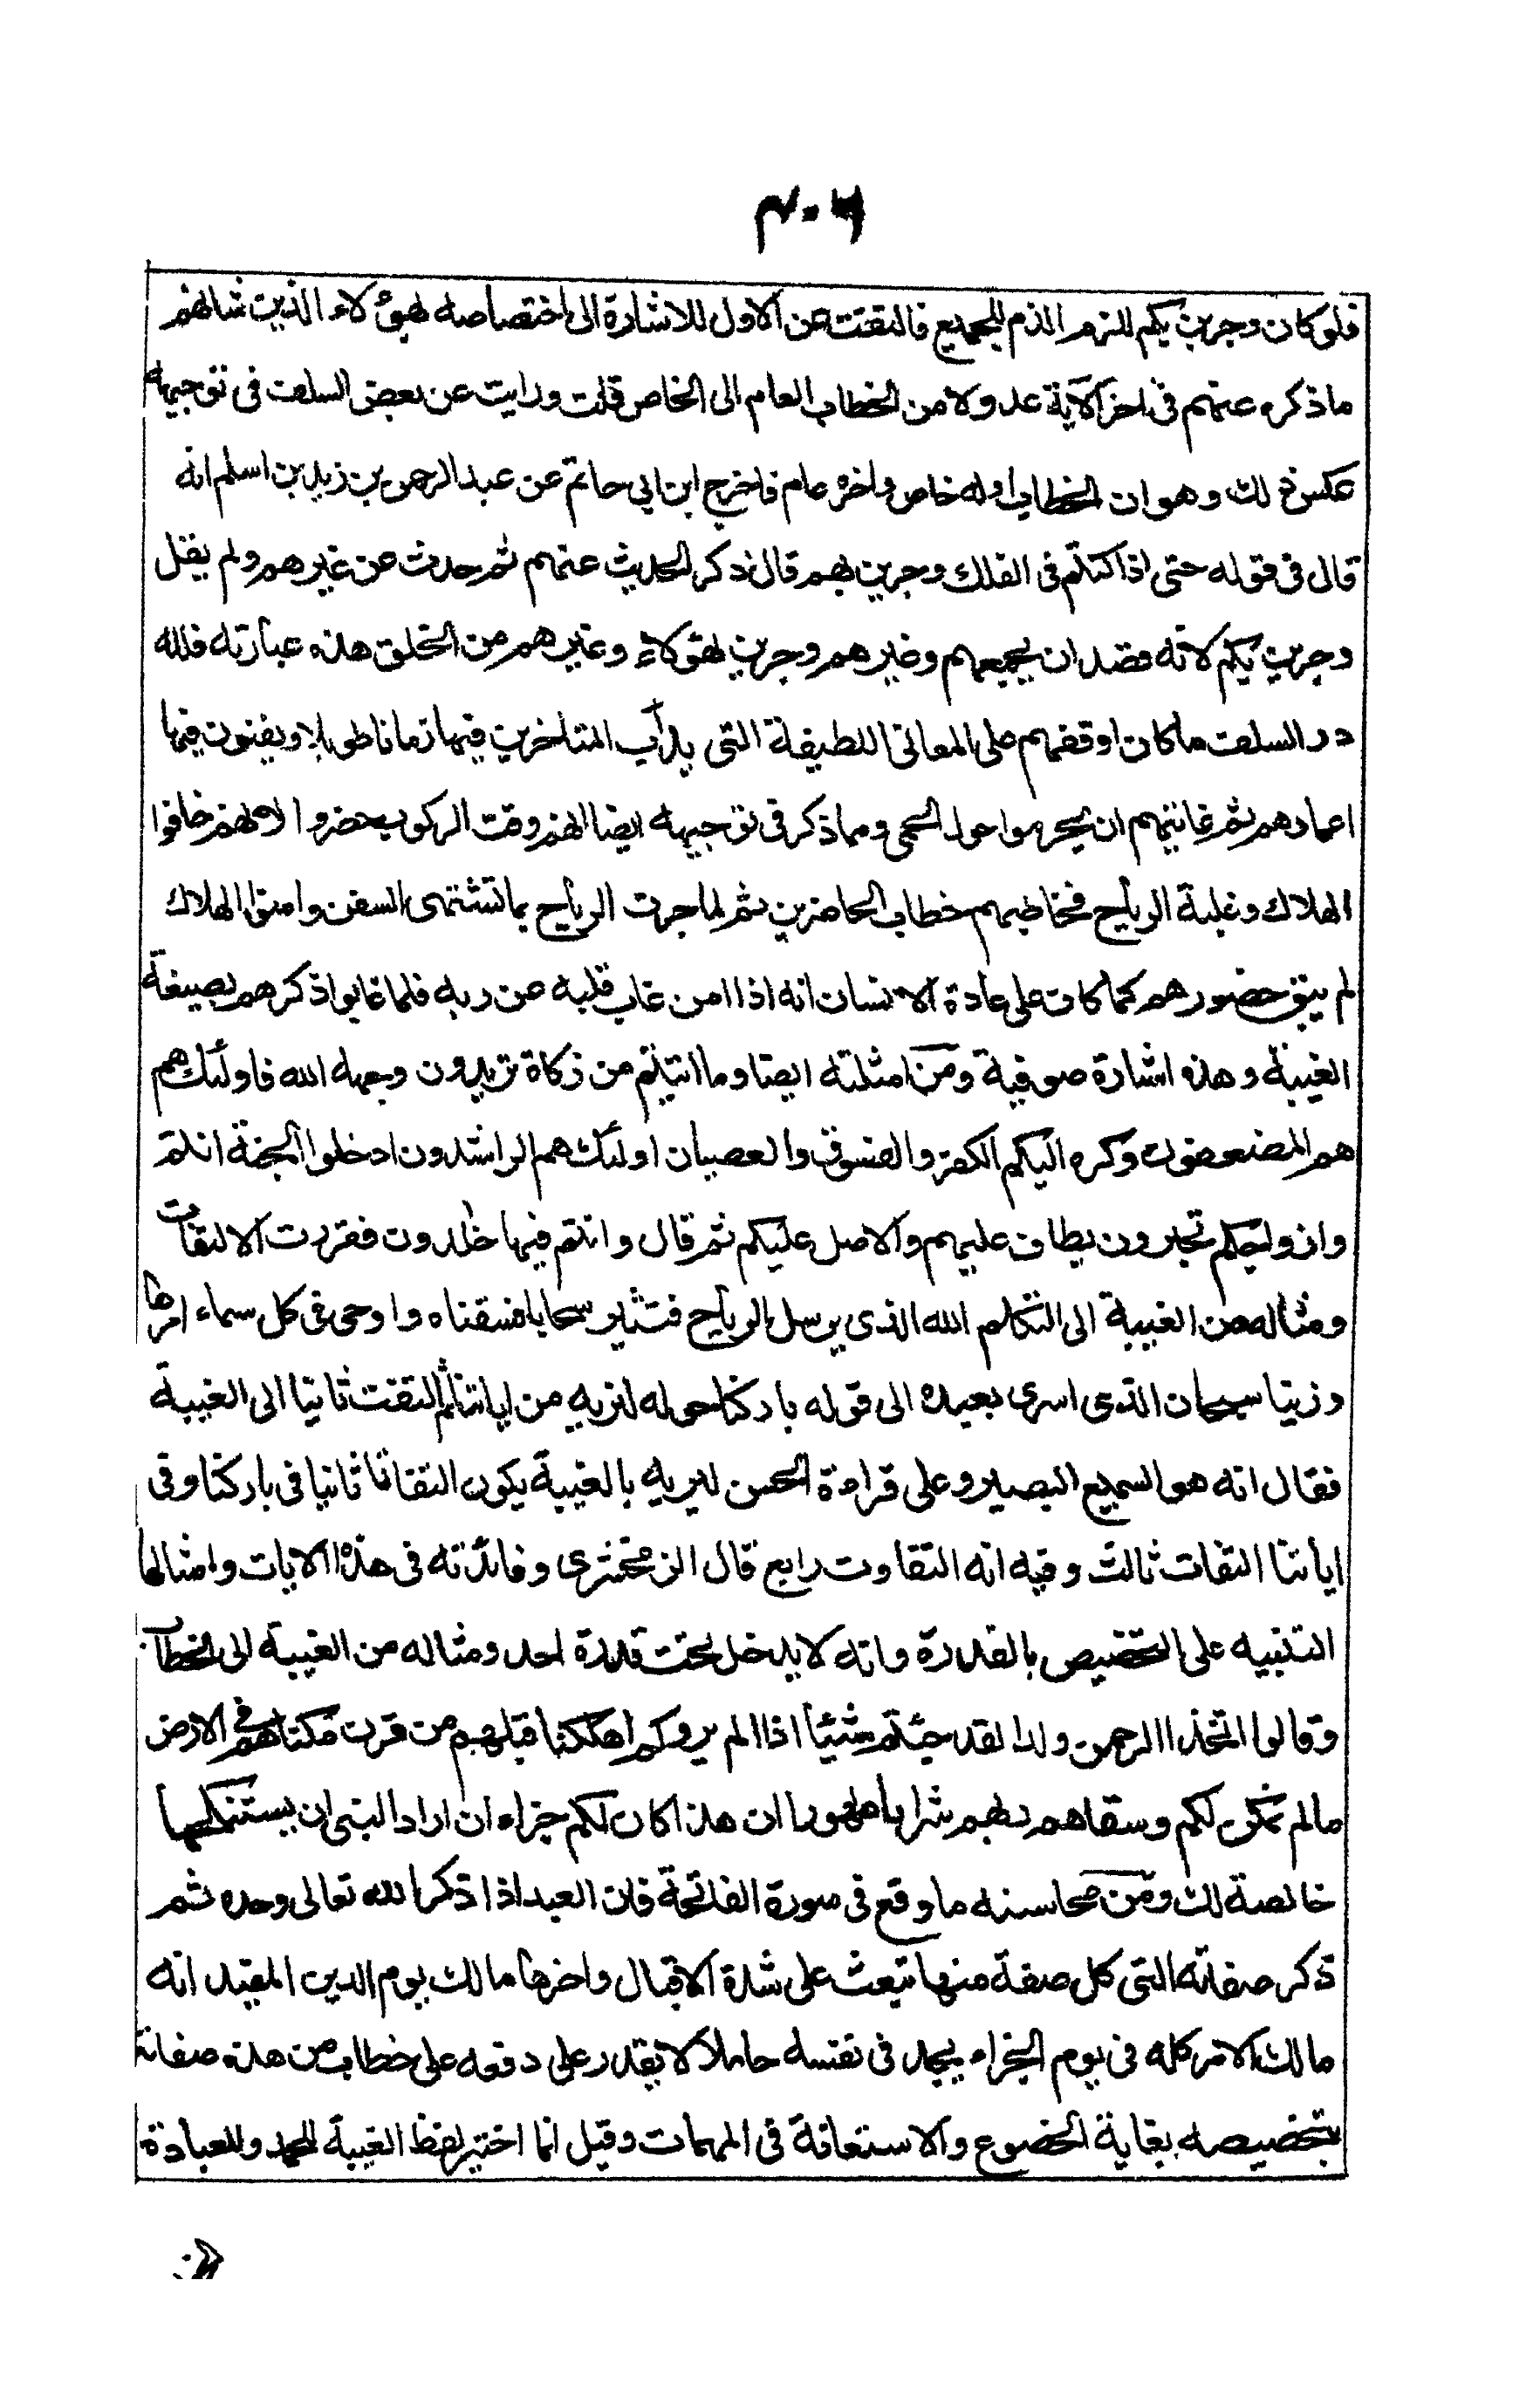 ٣٠٦
فلو كان وجرين بكم للزم الذم للجميع فالتفت عن الاول للاشارة الى اختصاصه لهؤلاء الذين شانهم
ما ذكره عنهم فى اخر الآية عدولا من الخطاب العام الى الخاص قلت ورايت عن بعض السلف فى توجيهه
عكس ذلك وهو ان الخطاب اوله خاص واخره عام فاخرج ابن ابي حاتم عن عبد الرحمن بن زيد بن اسلم انه
قال فى قوله حتى اذا كنتم فى الفلك وجرين بهم قال ذكر الحديث عنهم ثم حدث عن غيرهم ولم يقل
وجرين بكم لانه قصد ان يجمعهم وغيرهم وجرين لهؤلاء وغيرهم من الخلق هذه عبارته فلله
در السلف ما كان اوقفهم على المعانى اللطيفة التى يدأب المتاخرين فيها زمانا طويلا ويفنون فيها
اعمارهم ثم غايتهم ان يحوموا حول الحمى ومما ذكر فى توجيهه ايضا انهم وقت الركوب حضروا لانهم خافوا
الهلاك وغلبة الرياح فخاطبهم خطاب الحاضرين ثم لما جرت الرياح بما تشتهى السفن وامنوا الهلاك
لم يبق حضورهم كما كان على عادة الانسان انه اذا امن غاب قلبه عن ربه فلما غابوا ذكرهم بصيغة
الغيبة وهذه اشارة صوفية ومن امثلته ايضا وما اتيتم من زكاة تريدون وجهه الله فاولئك هم
هم المضعفون وكره اليكم الكفر والفسوق والعصيان اولئك هم الراشدون ادخلوا الجنة انتم
وازواجكم تحبرون يطاف عليهم والاصل عليكم ثم قال وانتم فيها خلدون فقررت الالتفات
ومثاله من الغيبة الى التكلم الله الذى يرسل الرياح فتثير سحابا فسقناه واوحى فى كل سماء امرها
وزينا سبحان الذى اسرى بعبده الى قوله باركنا حوله لنريه من اياتنا ثم التفت ثانيا الى الغيبة
فقال انه هو السميع البصير وعلى قراءة الحسن ليريه بالغيبة يكون التفاتا ثانيا فى باركنا وفى
اياتنا التفات ثالث وفيه انه التفاوت رابع قال الزمخشرى وفائدته فى هذه الايات وامثالها
التنبيه على التخصيص بالقدرة وانه لا يدخل تحت قدرة احد ومثاله من الغيبة الى الخطاب
وقالوا اتخذ االرحمن ولدا لقد جئتم شيئا اذا الم يروكم اهلكنا قبلهم من قرن مكناهم فى الارض
مالم نمكن لكم وسقاهم ربهم شرابا طهورا ان هذا كان لكم جزاء ان اراد النبى ان يستنكحها
خالصة لك ومن محاسنه ما وقع فى سورة الفاتحة فان العبد اذا ذكر الله تعالى وحده ثم
ذكر صفاته التى كل صفة منها تبعث على شدة الاقبال واخرها مالك يوم الدين المفيد انه
مالك الامر كله فى يوم الجزاء يجد فى نفسه حاملا لا يقدر على دفعه على خطاب من هذه صفاته
بتخصيصه بغاية الخضوع والاستعانة فى المهمات وقيل انما اختير لفظ الغيبة للحمد وللعبادة